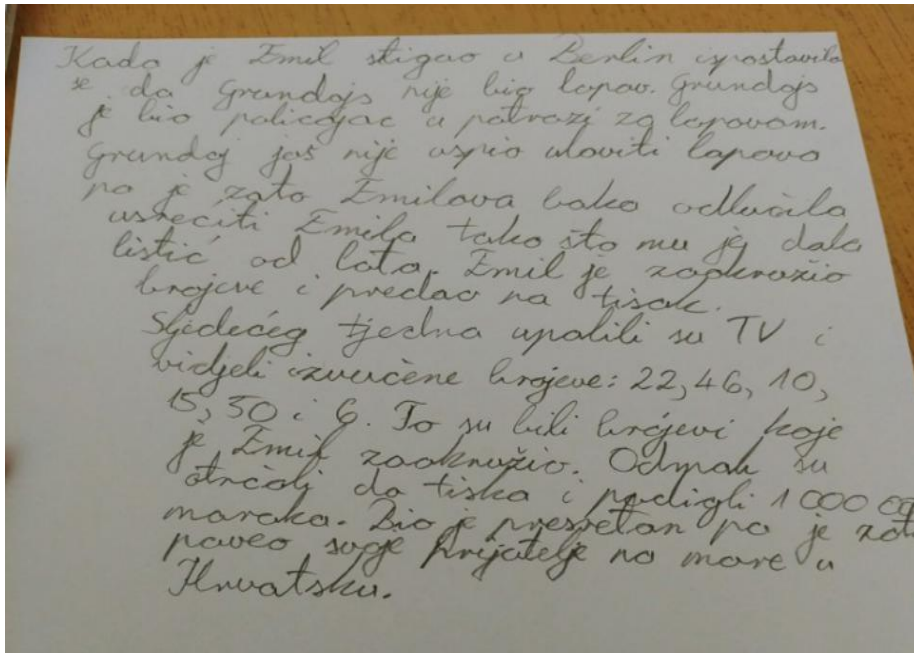 Kada je Emil stigao u Berlin ispostavilo
se da Grundajs nije bio lopov. Grundajs
je bio policajac u potrazi za lopovom.
Grundaj još nije uspio uloviti lopova
pa je zato Emilova baka odlučila
usrećiti Emila tako što mu je dala
listić od lota. Emil je zaokružio
brojeve i predao na tisak.
Sljedećeg tjedna upalili su TV i
vidjeli izvučene brojeve: 22, 46, 10,
15, 50 i 6. To su bili brojevi koje
je Emil zaokružio. Odmah su
otrčali do tiska i podigli 1 000 00
maraka. Bio je presretan pa je zato
poveo svoje prijatelje na more u
Hrvatsku.